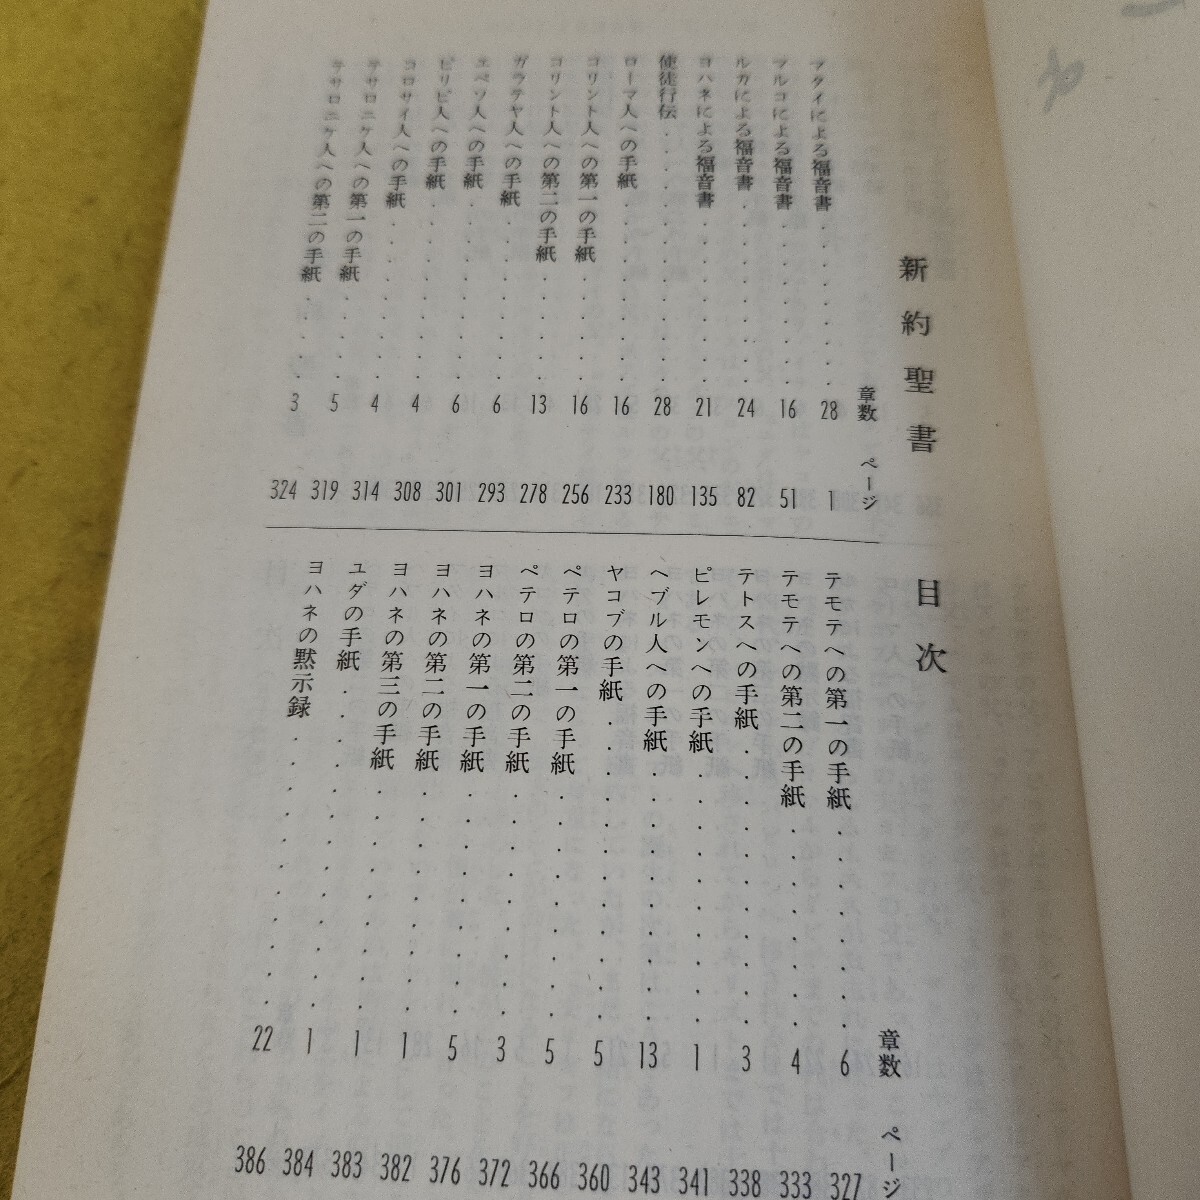 新約聖書 目次
章数 ページ
マタイによる福音書 28 1
マルコによる福音書 16 51
ルカによる福音書 24 82
ヨハネによる福音書 21 135
使徒行伝 28 180
ローマ人への手紙 16 233
コリント人への第一の手紙 16 256
コリント人への第二の手紙 13 278
ガラテヤ人への手紙 6 293
エペソ人への手紙 6 301
ピリピ人への手紙 4 308
コロサイ人への手紙 4 314
テサロニケ人への第一の手紙 5 319
テサロニケ人への第二の手紙 3 324
章数 ページ
テモテへの第一の手紙 6 327
テモテへの第二の手紙 4 333
テトスへの手紙 3 338
ピレモンへの手紙 1 341
ヘブル人への手紙 13 343
ヤコブの手紙 5 360
ペテロの第一の手紙 5 366
ペテロの第二の手紙 3 372
ヨハネの第一の手紙 5 376
ヨハネの第二の手紙 1 382
ヨハネの第三の手紙 1 383
ユダの手紙 1 384
ヨハネの黙示録 22 386